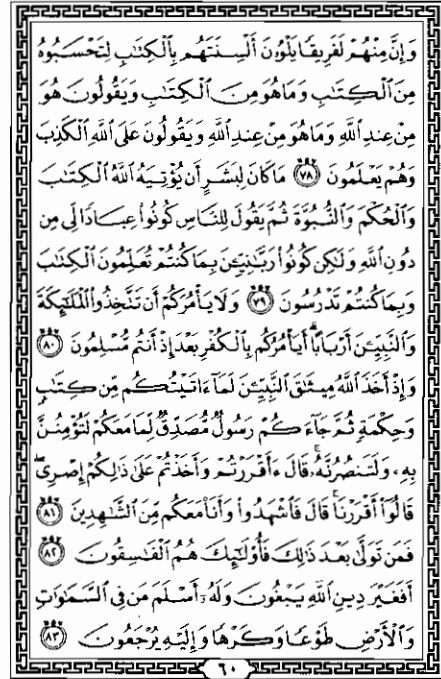 وَإِنَّ مِنْهُمْ لَفَرِيقًا يَلْوُۥنَ أَلْسِنَتَهُم بِٱلْكِتَٰبِ لِتَحْسَبُوهُ
مِنَ ٱلْكِتَٰبِ وَمَا هُوَ مِنَ ٱلْكِتَٰبِ وَيَقُولُونَ هُوَ
مِنْ عِندِ ٱللَّهِ وَمَا هُوَ مِنْ عِندِ ٱللَّهِ وَيَقُولُونَ عَلَى ٱللَّهِ ٱلْكَذِبَ
وَهُمْ يَعْلَمُونَ ٧٨ مَا كَانَ لِبَشَرٍ أَن يُؤْتِيَهُ ٱللَّهُ ٱلْكِتَٰبَ
وَٱلْحُكْمَ وَٱلنُّبُوَّةَ ثُمَّ يَقُولَ لِلنَّاسِ كُونُوا۟ عِبَادًا لِّى مِن
دُونِ ٱللَّهِ وَلَٰكِن كُونُوا۟ رَبَّٰنِيِّـۧنَ بِمَا كُنتُمْ تُعَلِّمُونَ ٱلْكِتَٰبَ
وَبِمَا كُنتُمْ تَدْرُسُونَ ٧٩ وَلَا يَأْمُرَكُمْ أَن تَتَّخِذُوا۟ ٱلْمَلَٰٓئِكَةَ
وَٱلنَّبِيِّـۧنَ أَرْبَابًا ۗ أَيَأْمُرُكُم بِٱلْكُفْرِ بَعْدَ إِذْ أَنتُم مُّسْلِمُونَ ٨٠
وَإِذْ أَخَذَ ٱللَّهُ مِيثَٰقَ ٱلنَّبِيِّـۧنَ لَمَآ ءَاتَيْتُكُم مِّن كِتَٰبٍ
وَحِكْمَةٍ ثُمَّ جَآءَكُمْ رَسُولٌ مُّصَدِّقٌ لِّمَا مَعَكُمْ لَتُؤْمِنُنَّ
بِهِۦ وَلَتَنصُرُنَّهُۥ ۚ قَالَ ءَأَقْرَرْتُمْ وَأَخَذْتُمْ عَلَىٰ ذَٰلِكُمْ إِصْرِى ۖ
قَالُوٓا۟ أَقْرَرْنَا ۚ قَالَ فَٱشْهَدُوا۟ وَأَنَا۠ مَعَكُم مِّنَ ٱلشَّٰهِدِينَ ٨١
فَمَن تَوَلَّىٰ بَعْدَ ذَٰلِكَ فَأُو۟لَٰٓئِكَ هُمُ ٱلْفَٰسِقُونَ ٨٢
أَفَغَيْرَ دِينِ ٱللَّهِ يَبْغُونَ وَلَهُۥٓ أَسْلَمَ مَن فِى ٱلسَّمَٰوَٰتِ
وَٱلْأَرْضِ طَوْعًا وَكَرْهًا وَإِلَيْهِ يُرْجَعُونَ ٨٣
٦٠